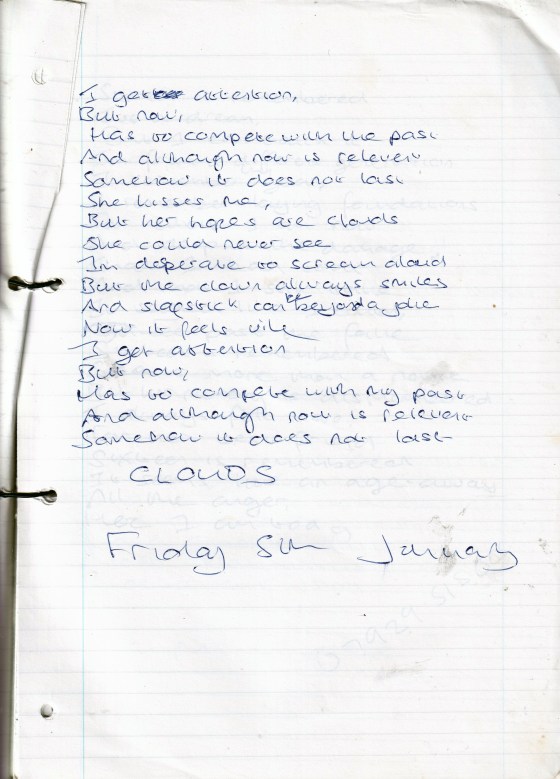 I get attention,
But now,
Has to compete with the past
And although now is relevent
Somehow it does not last
She kisses me,
But her hopes are clouds
She could never see
Im desperate to scream aloud
But the clown always smiles
And slapstick can't be beyond a joke
Now it feels vile
I get attention
But now,
Has to compete with my past
And although now is relevent
Somehow it does not last
CLOUDS
Friday 5th January